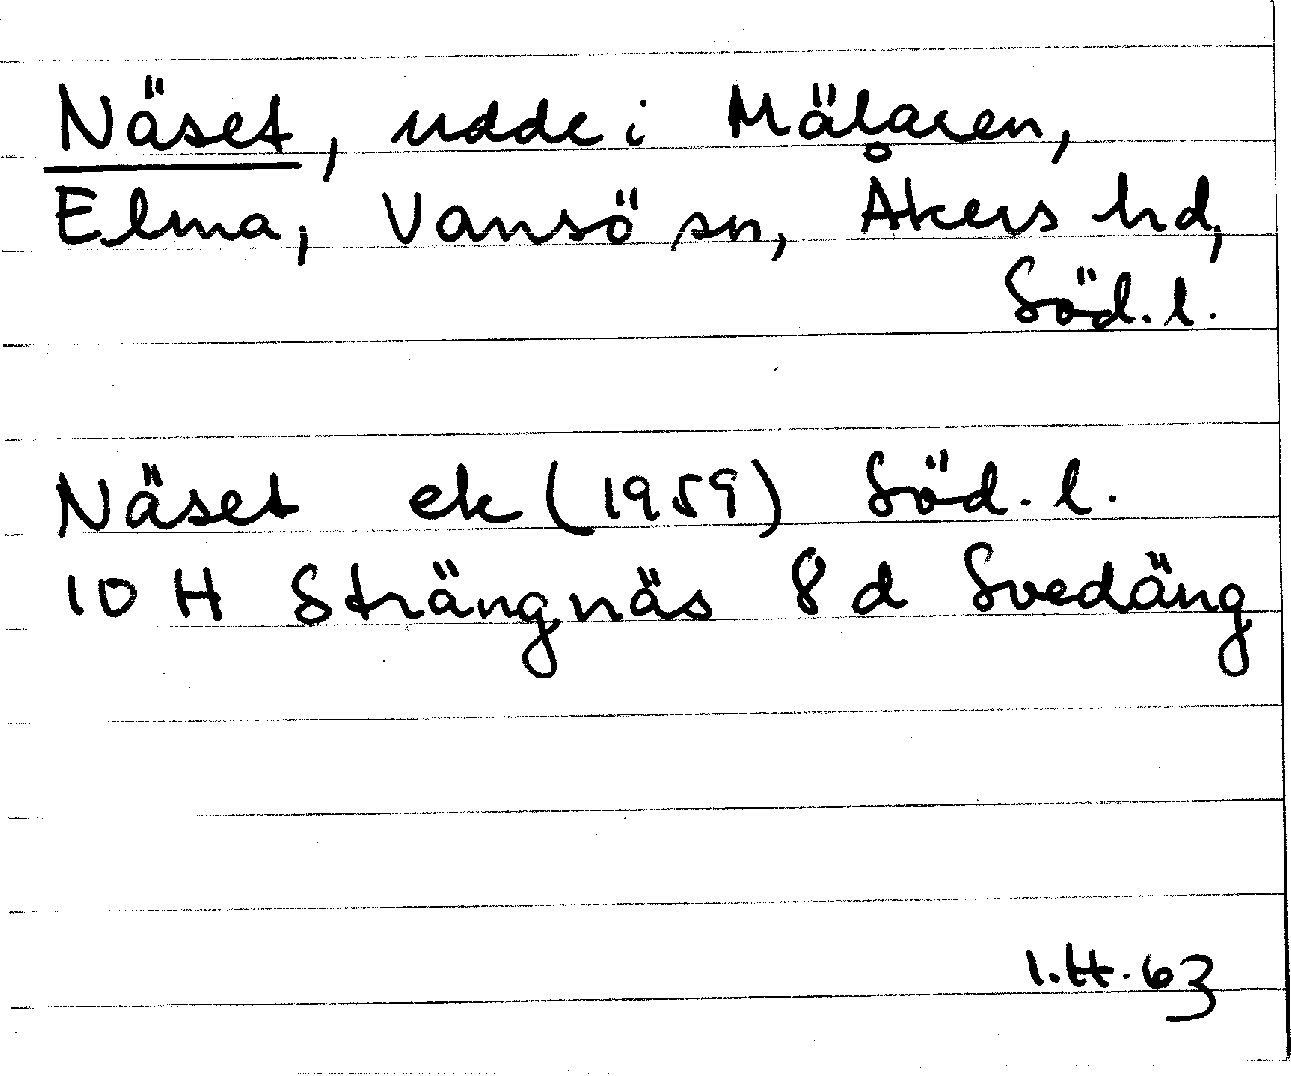 Näset, udde i Mälaren,
Elma, Vansö sn, Åkers hd,
Söd. l.
Näset ek (1959) Söd. l.
10 H Strängnäs 8 d Svedäng
I.H. 63